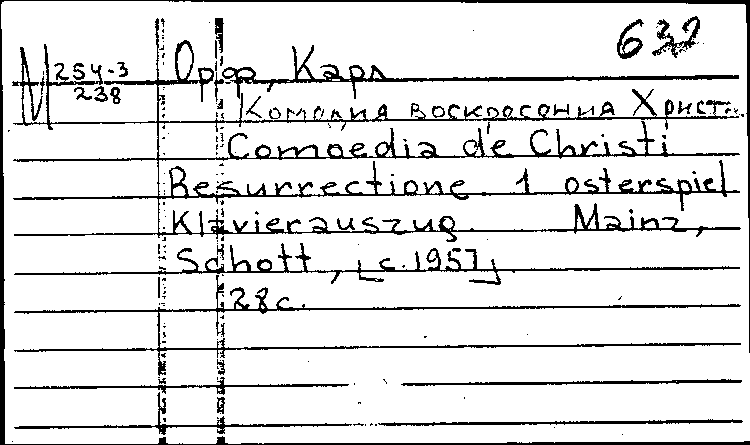 632
М 254-3
238
Орф, Карл
Комедия воскресения Христа.
Comoedia de Christi
Resurrectione. 1 osterspiel
Klavierauszug. Mainz,
Schott, [c. 1957].
28 с.